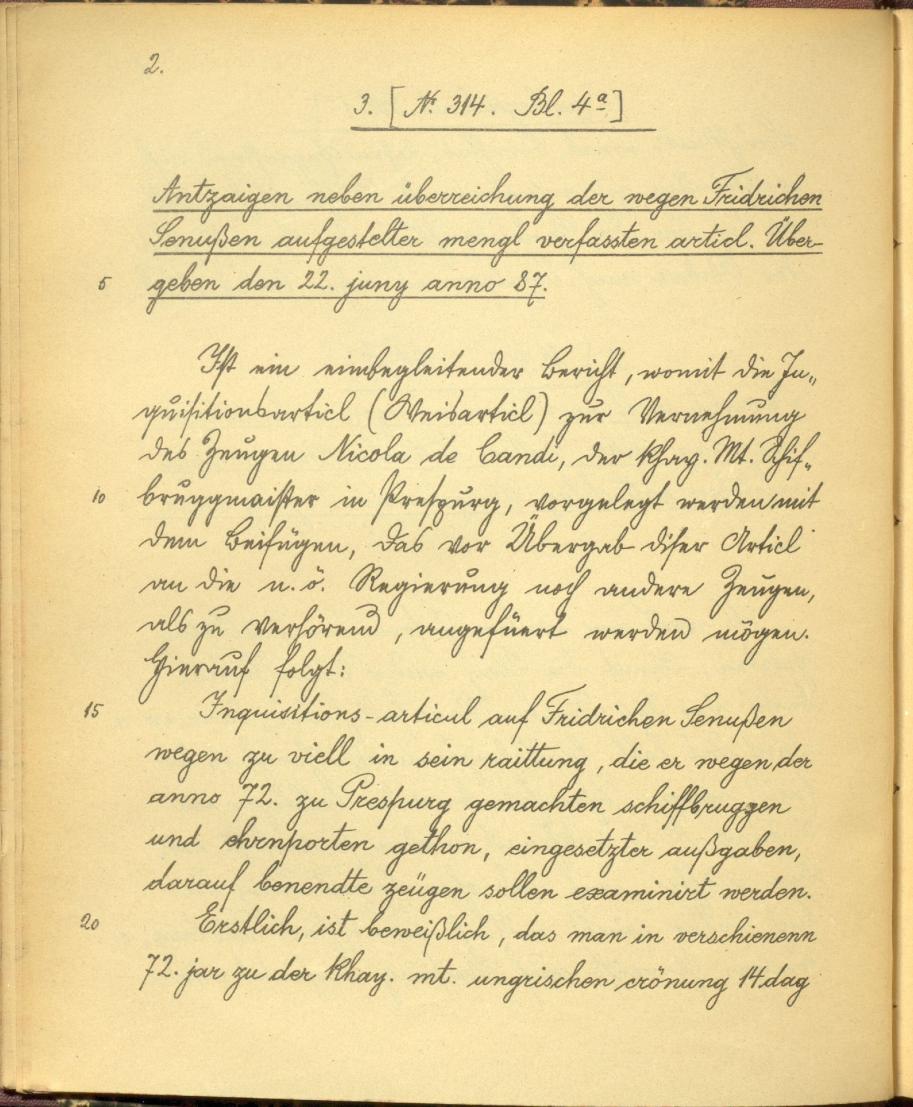 2.
3. [N° 314. Bl. 4a]
Antzaigen neben überreichung der wegen Fridrichen
Senußen aufgestelter mengl verfassten articl. Über-
5 geben den 22. juny anno 87.
Ist ein einbegleitender Bericht, womit die In„
quisitionsarticl (Weisarticl) zur Vernehmung
des Zeugen Nicola de Candi, der khay. Mt. Schif„
10 bruggmaister in Prespurg, vorgelegt werden mit
dem Beifügen, das vor Übergab diser Articl
an die n. ö. Regierung noch andere Zeugen,
als zu verhörend, angefüert werden mögen.
Hierauf folgt:
15 Inquisitions-articul auf Fridrichen Senußen
wegen zu viell in sein raittung, die er wegen der
anno 72. zu Prespurg gemachten schiffbruggen
und ehrnporten gethon, eingesetzter außgaben,
darauf benendte zeügen sollen examinirt werden.
20 Erstlich, ist beweißlich, das man in verschienenn
72. jar zu der khay. mt. ungrischen crönung 14 dag